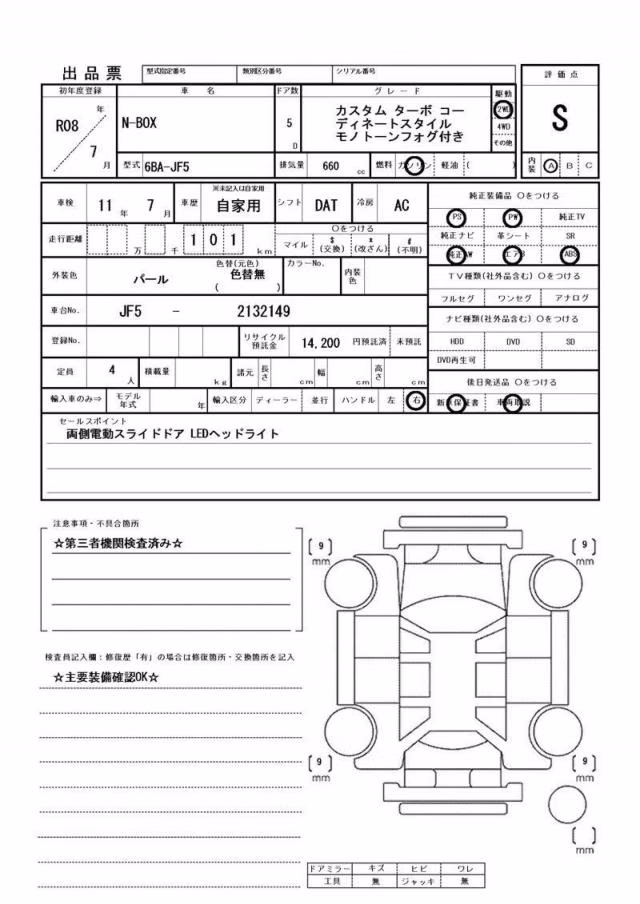 出品票 型式指定番号 類別区分番号 シリアル番号 評価点
初年度登録 車名 ドア数 グレード 駆動
R08 年 7 月 N-BOX 5 D
カスタム ターボ コー
ディネートスタイル
モノトーンフォグ付き
2WD
4WD
その他
S
型式 6BA-JF5 排気量 660 cc 燃料 ガソリン 軽油 ( ) 内装 A B C
車検 11 年 7 月 車歴 ※未記入は自家用 自家用 シフト DAT 冷房 AC
純正装備品 ○をつける
PS PW 純正TV
純正ナビ 革シート SR
純正AW エアB ABS
走行距離 万 千 1 0 1 km ○をつける
マイル $ (交換) x (改ざん) # (不明)
外装色 パール 色替(元色) 色替無 ( ) カラーNo. 内装色
TV種類(社外品含む) ○をつける
フルセグ ワンセグ アナログ
車台No. JF5 - 2132149
ナビ種類(社外品含む) ○をつける
登録No. リサイクル預託金 14,200 円預託済 未預託
HDD DVD SD
DVD再生可
定員 4 人 積載量 kg 諸元 長さ cm 幅 cm 高さ cm
後日発送品 ○をつける
輸入車のみ⇒ モデル年式 年 輸入区分 ディーラー 並行 ハンドル 左 右
新車保証書 車両取説
セールスポイント
両側電動スライドドア LEDヘッドライト
注意事項・不具合箇所
☆第三者機関検査済み☆
検査員記入欄：修復歴「有」の場合は修復箇所・交換箇所を記入
☆主要装備確認OK☆
( 9 ) mm
( 9 ) mm
( 9 ) mm
( 9 ) mm
( ) mm
ドアミラー キズ ヒビ ワレ
工具 無 ジャッキ 無